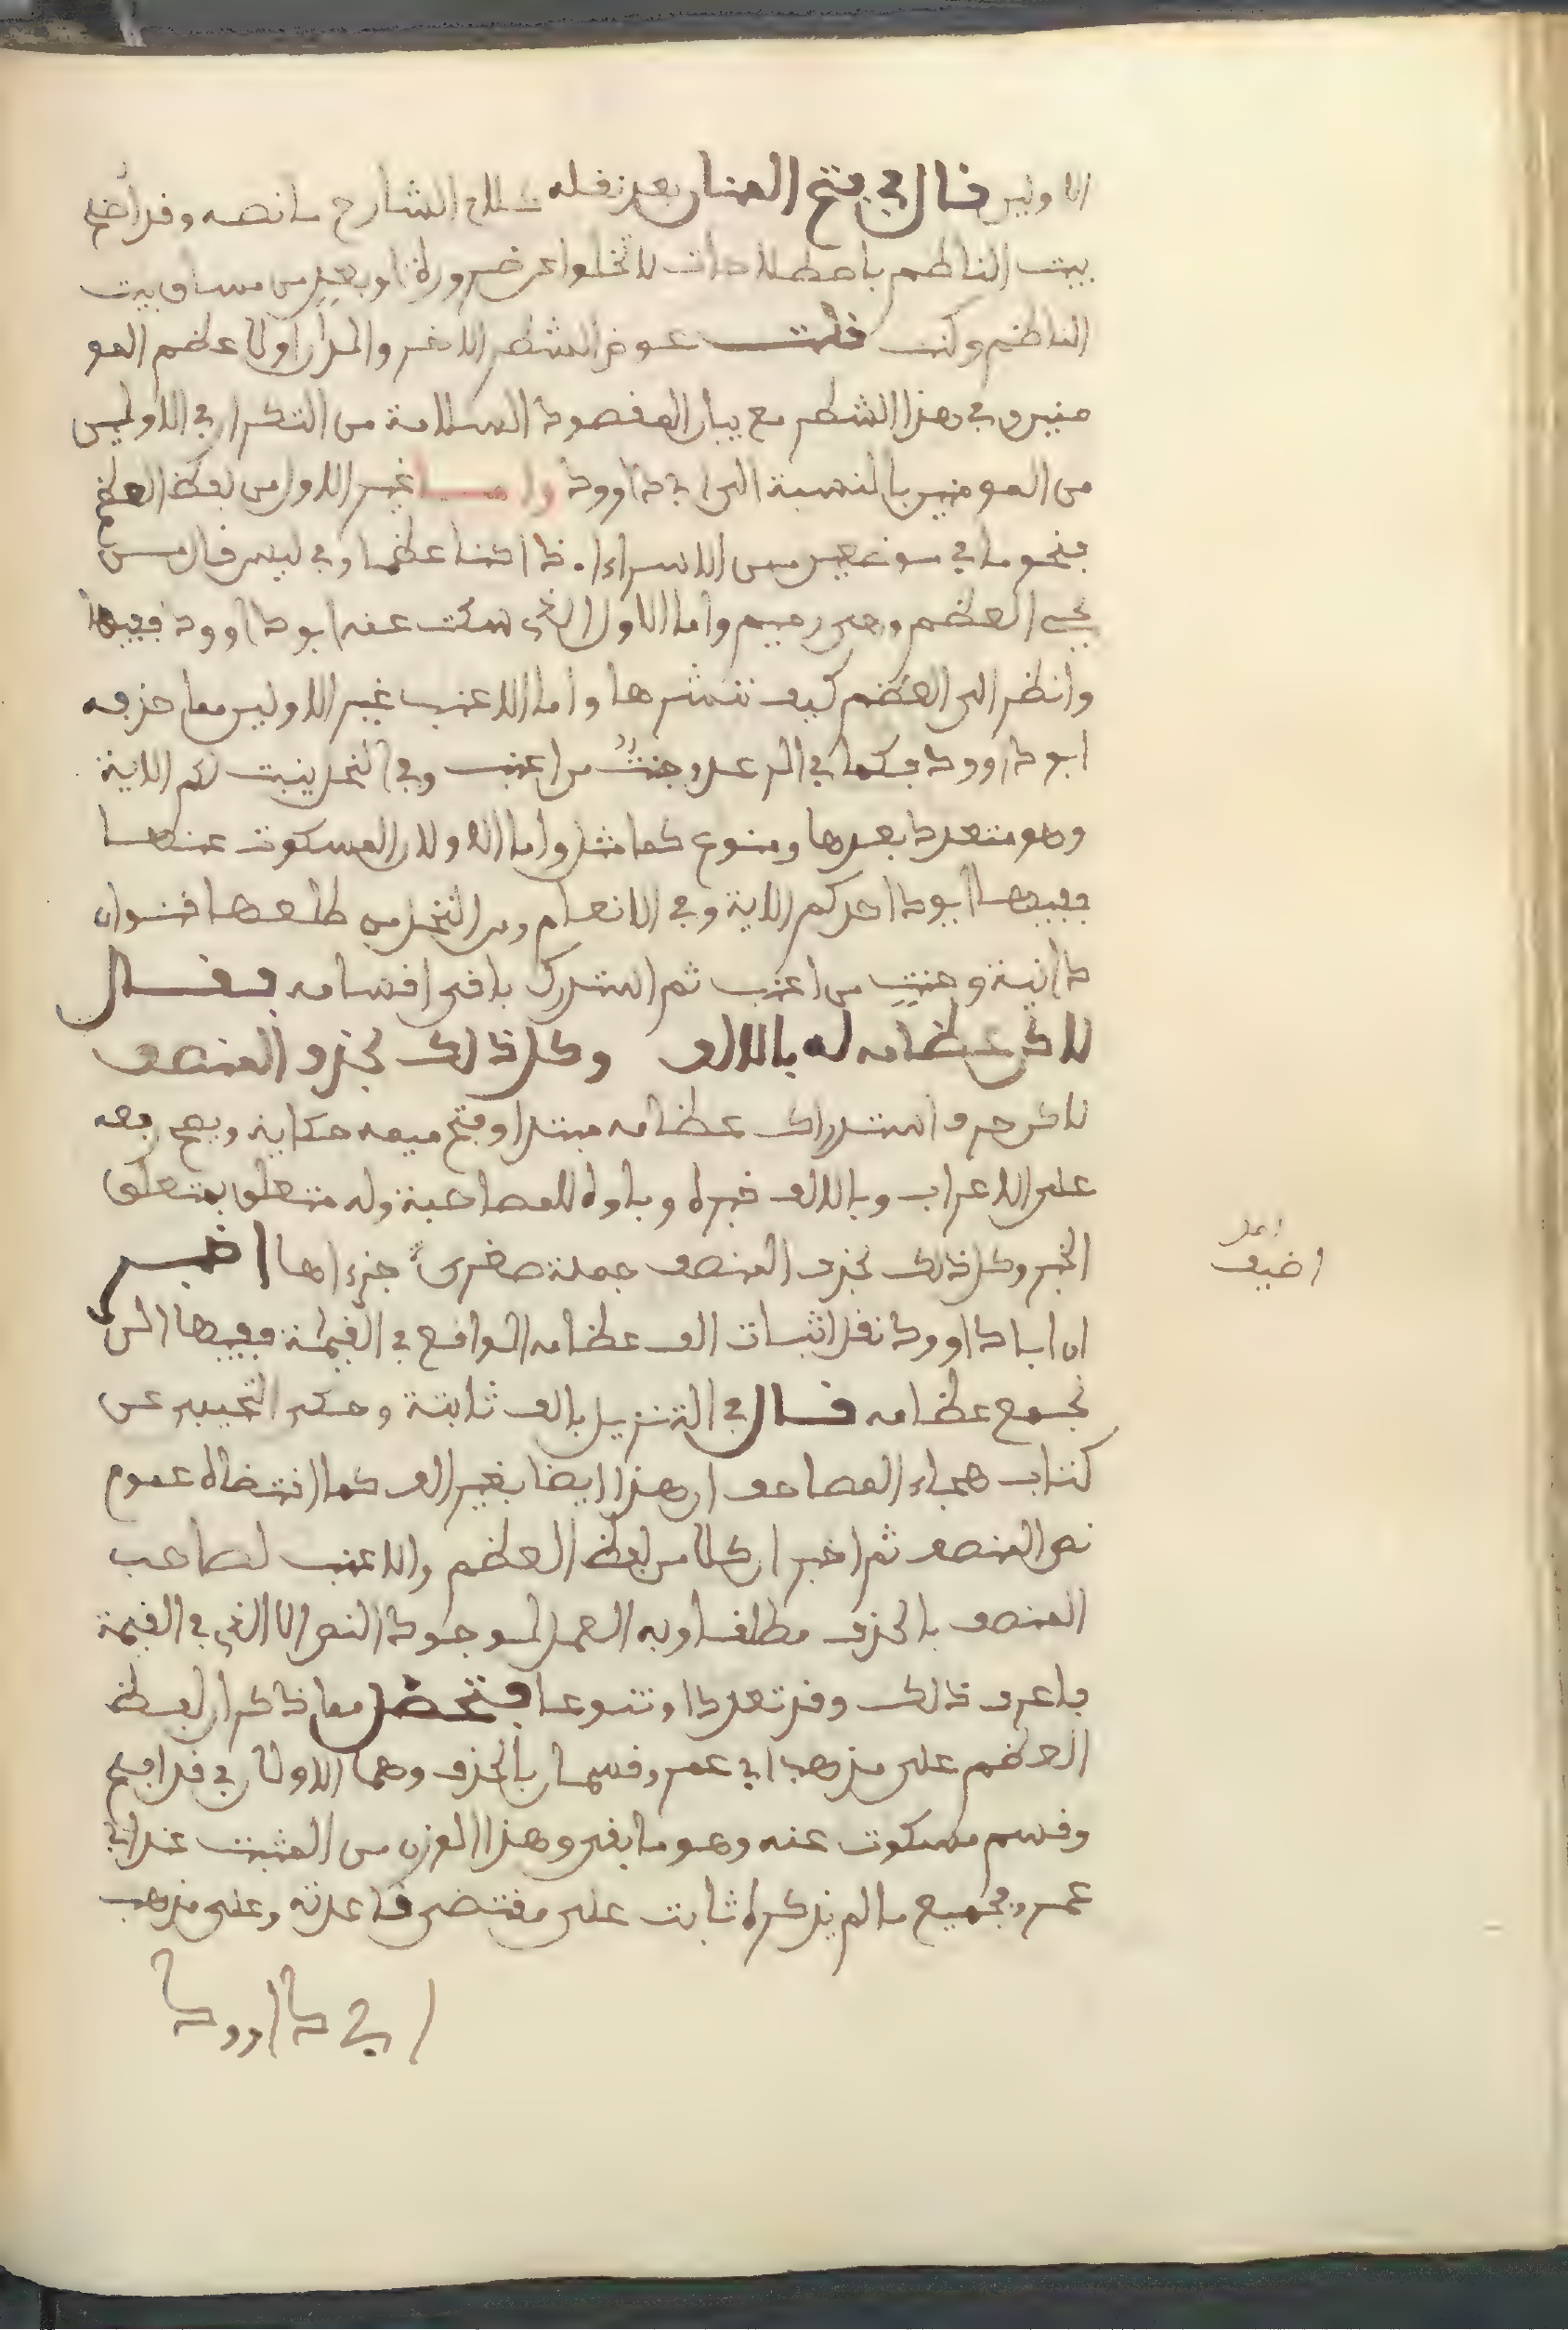 الاولين قال في فتح المنان بعد نقله كلام الشارح ما نصه وقد أصلح
بيت الناظم باصطلاحات لا تخلوا عن ضرورة او بعد من مساق بيت
الناظم وكنت قلت عوض الشطر الاخير والمراد اولا عظم المو
منين وفي هذا الشطر مع بيان المقصود السلامة من التكرار في الاولين
من المومنين بالنسبة الى ابي داوود واما غير الاول من لفظ العظم
فنحو ما في موضعين من الاسراء اذا كنا عظما وفي ليس قال من
يحي العظم وهي رميم واما الاول الذي سكت عنه ابو داوود ففيها
وانظر الى العظم كيف ننشرها واما الاعنب غير الاولين مما حذفه
ابو داوود فكما في الرعد وجنت من اعنب وفي النحل ينبت لكم الاية
وهو متعدد بعدها ومنوع كما مثل واما الاولان المسكوت عنهما
ففيها ايود احدكم الاية وفي الانعام ومن النخل من طلعها قنوان
دانية وجنت من اعنب ثم استدرك باقي اقسامه فقال
لاكن عظامه له بالالف وكل ذلك بحذف المنصف
لاكن حرف استدراك عظامه مبتدا وفتح ميمه حكاية ويصح رفعه
على الاعراب وبالالف خبره وباوه للمصاحبة وله متعلق بمتعلق
الخبر وكل ذلك بحذف المنصف جملة صغرى جزءاها اخبر
ان ابا داوود نقل اثبات الف عظامه الواقع في القيمة ففيها الن
نجمع عظامه قال في التنزيل بالف ثابتة وحكى التجيبي عن
كتاب هجاء المصاحف ان هذا ايضا بغير الف كما اقتضاه عموم
نص المنصف ثم اخبر ان كلا من لفظ العظم والاعنب لصاحب
المنصف بالحذف مطلقا وبه العمل لوجود النص الا الذي في القيمة
فاعرف ذلك وقد تعددا وتنوعا فتحصل مما ذكر ان لفظ
العظم على مذهب ابي عمرو قسمان بالحذف وهما الاولان في قد افلح
وقسم مسكوت عنه وهو ما بقي وهذا الوزن من المثبت عند ابي
عمرو فجميع ما لم يذكره ثابت على مقتضى قاعدته وعلى مذهب
ابي داوود
اعل
اضيف